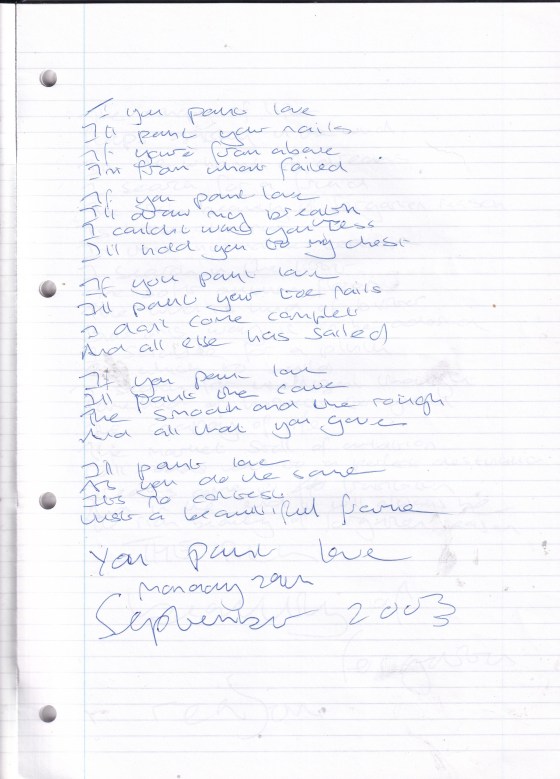 If you paint love
I'll paint your nails
If your's from above
I'm from what failed
If you paint love
I'll draw my breath
I couldn't want you less
I'll hold you to my chest
If you paint love
I'll paint your toe nails
I don't come complete
And all else has sailed
If you paint love
I'll paint the cave
The smooth and the rough
And all that you gave
I'll paint love
As you do the same
Its no contest
Just a beautiful frame
You paint love
Monday 29th
September 2003